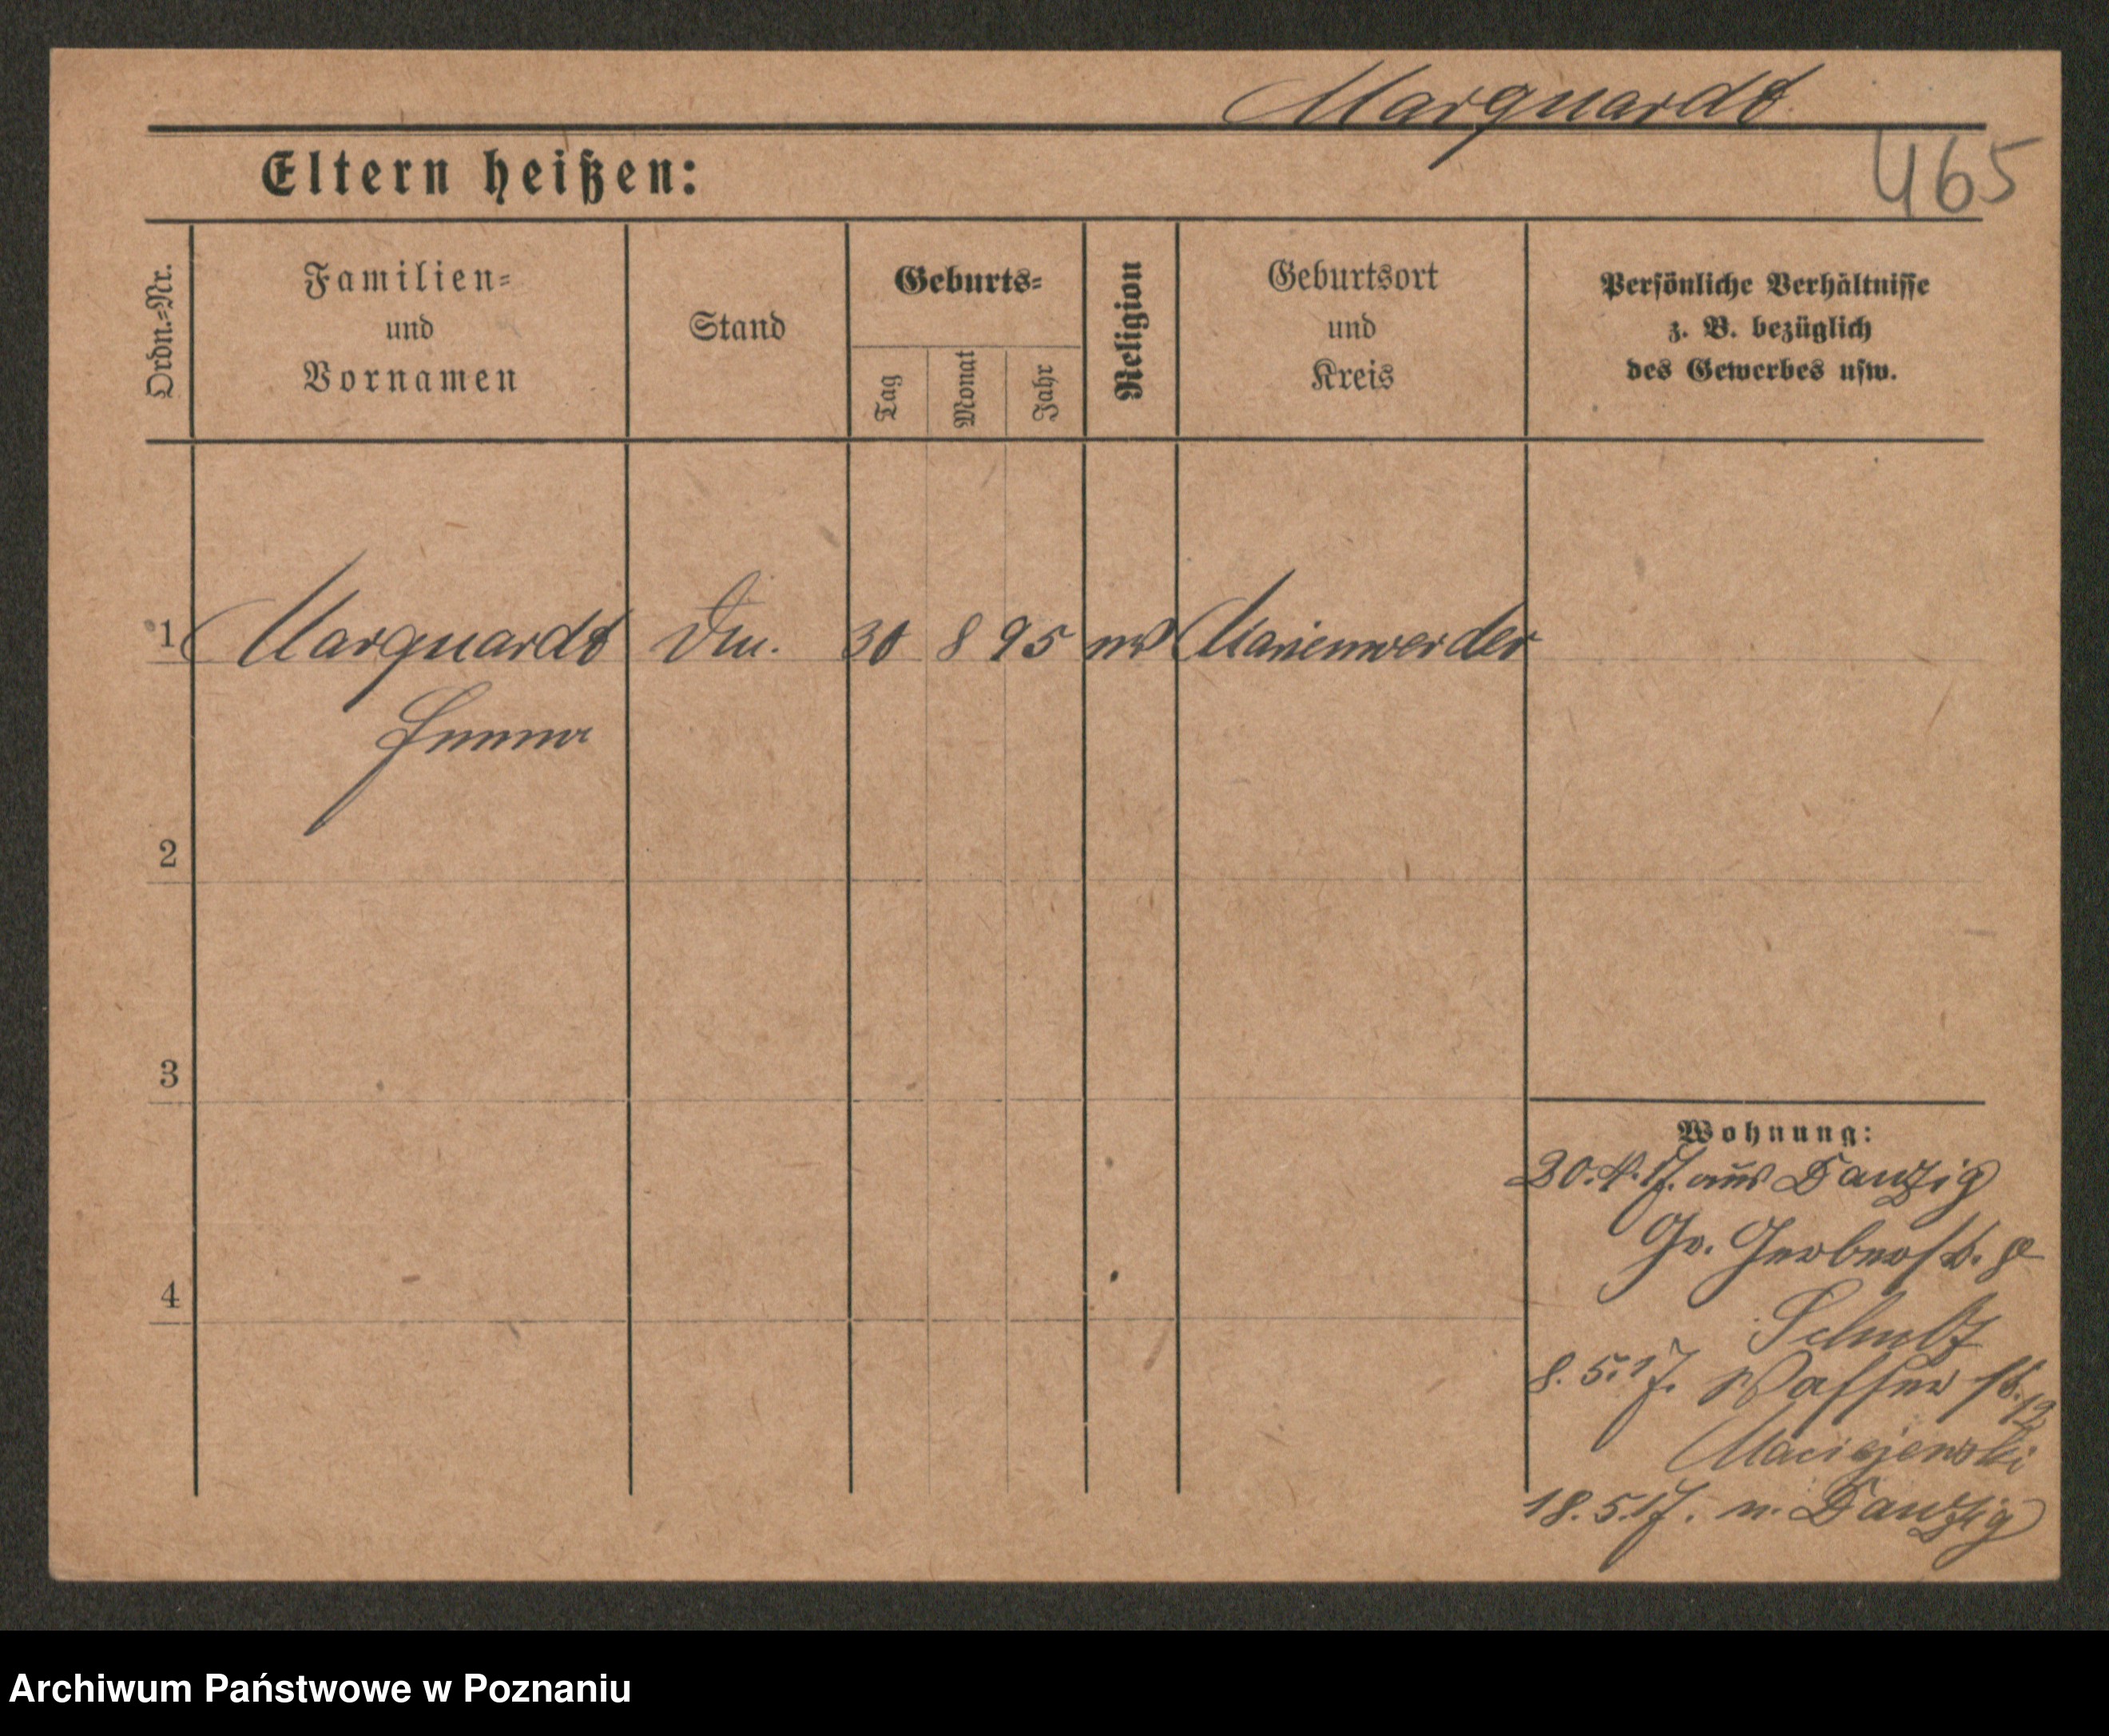 Marquardt
465
Eltern heißen:
Ordn.-Nr.
Familien-
und
Vornamen
Stand
Geburts-
Tag
Monat
Jahr
Religion
Geburtsort
und
Kreis
Persönliche Verhältnisse
z. B. bezüglich
des Gewerbes usw.
1 Marquardt 30 8 95 Marienwerder
2
3
4
Wohnung:
20.4.17. aus Danzig
Gr. Gerberst. 8
Schulz
8.5.17. Wasserst. 12
Maciejewski
18.5.17. n. Danzig
Archiwum Państwowe w Poznaniu